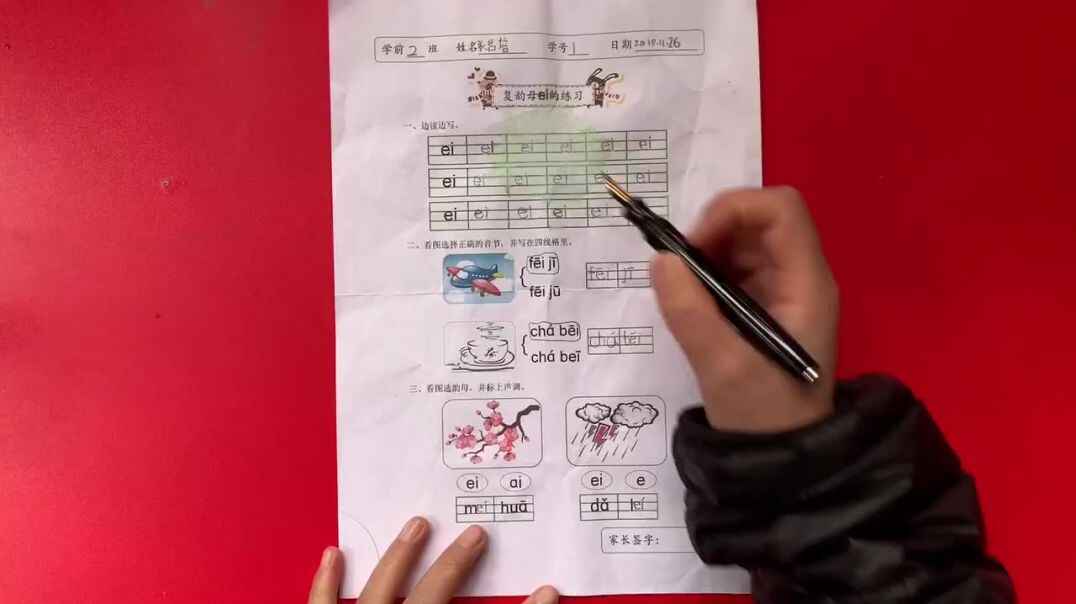 学前2班 姓名 学号1 日期2019.11.26
复韵母ei的练习
一、边读边写。
ei ei ei ei ei ei
ei ei ei ei ei ei
ei ei ei ei ei
二、看图选择正确的音节,并写在四线格里。
fēi jī fēi jī
fēi jū
chá bēi chá bēi
chá beī
茶
三、看图选韵母,并标上声调。
ei ai ei e
méi huā dǎ léi
家长签字: